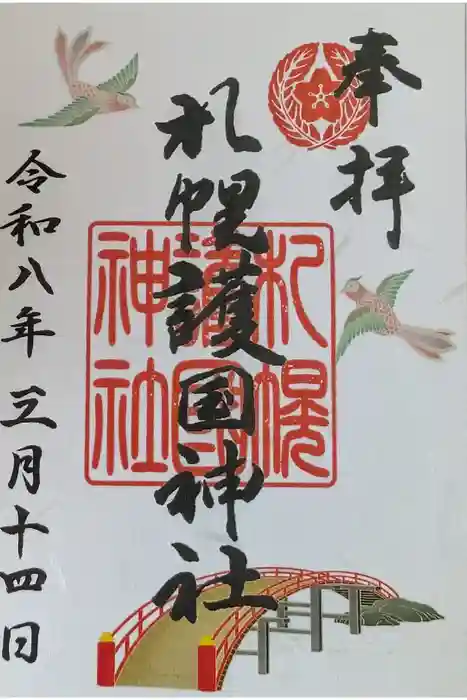 奉拝
札幌護国神社
札幌護国神社
令和八年三月十四日